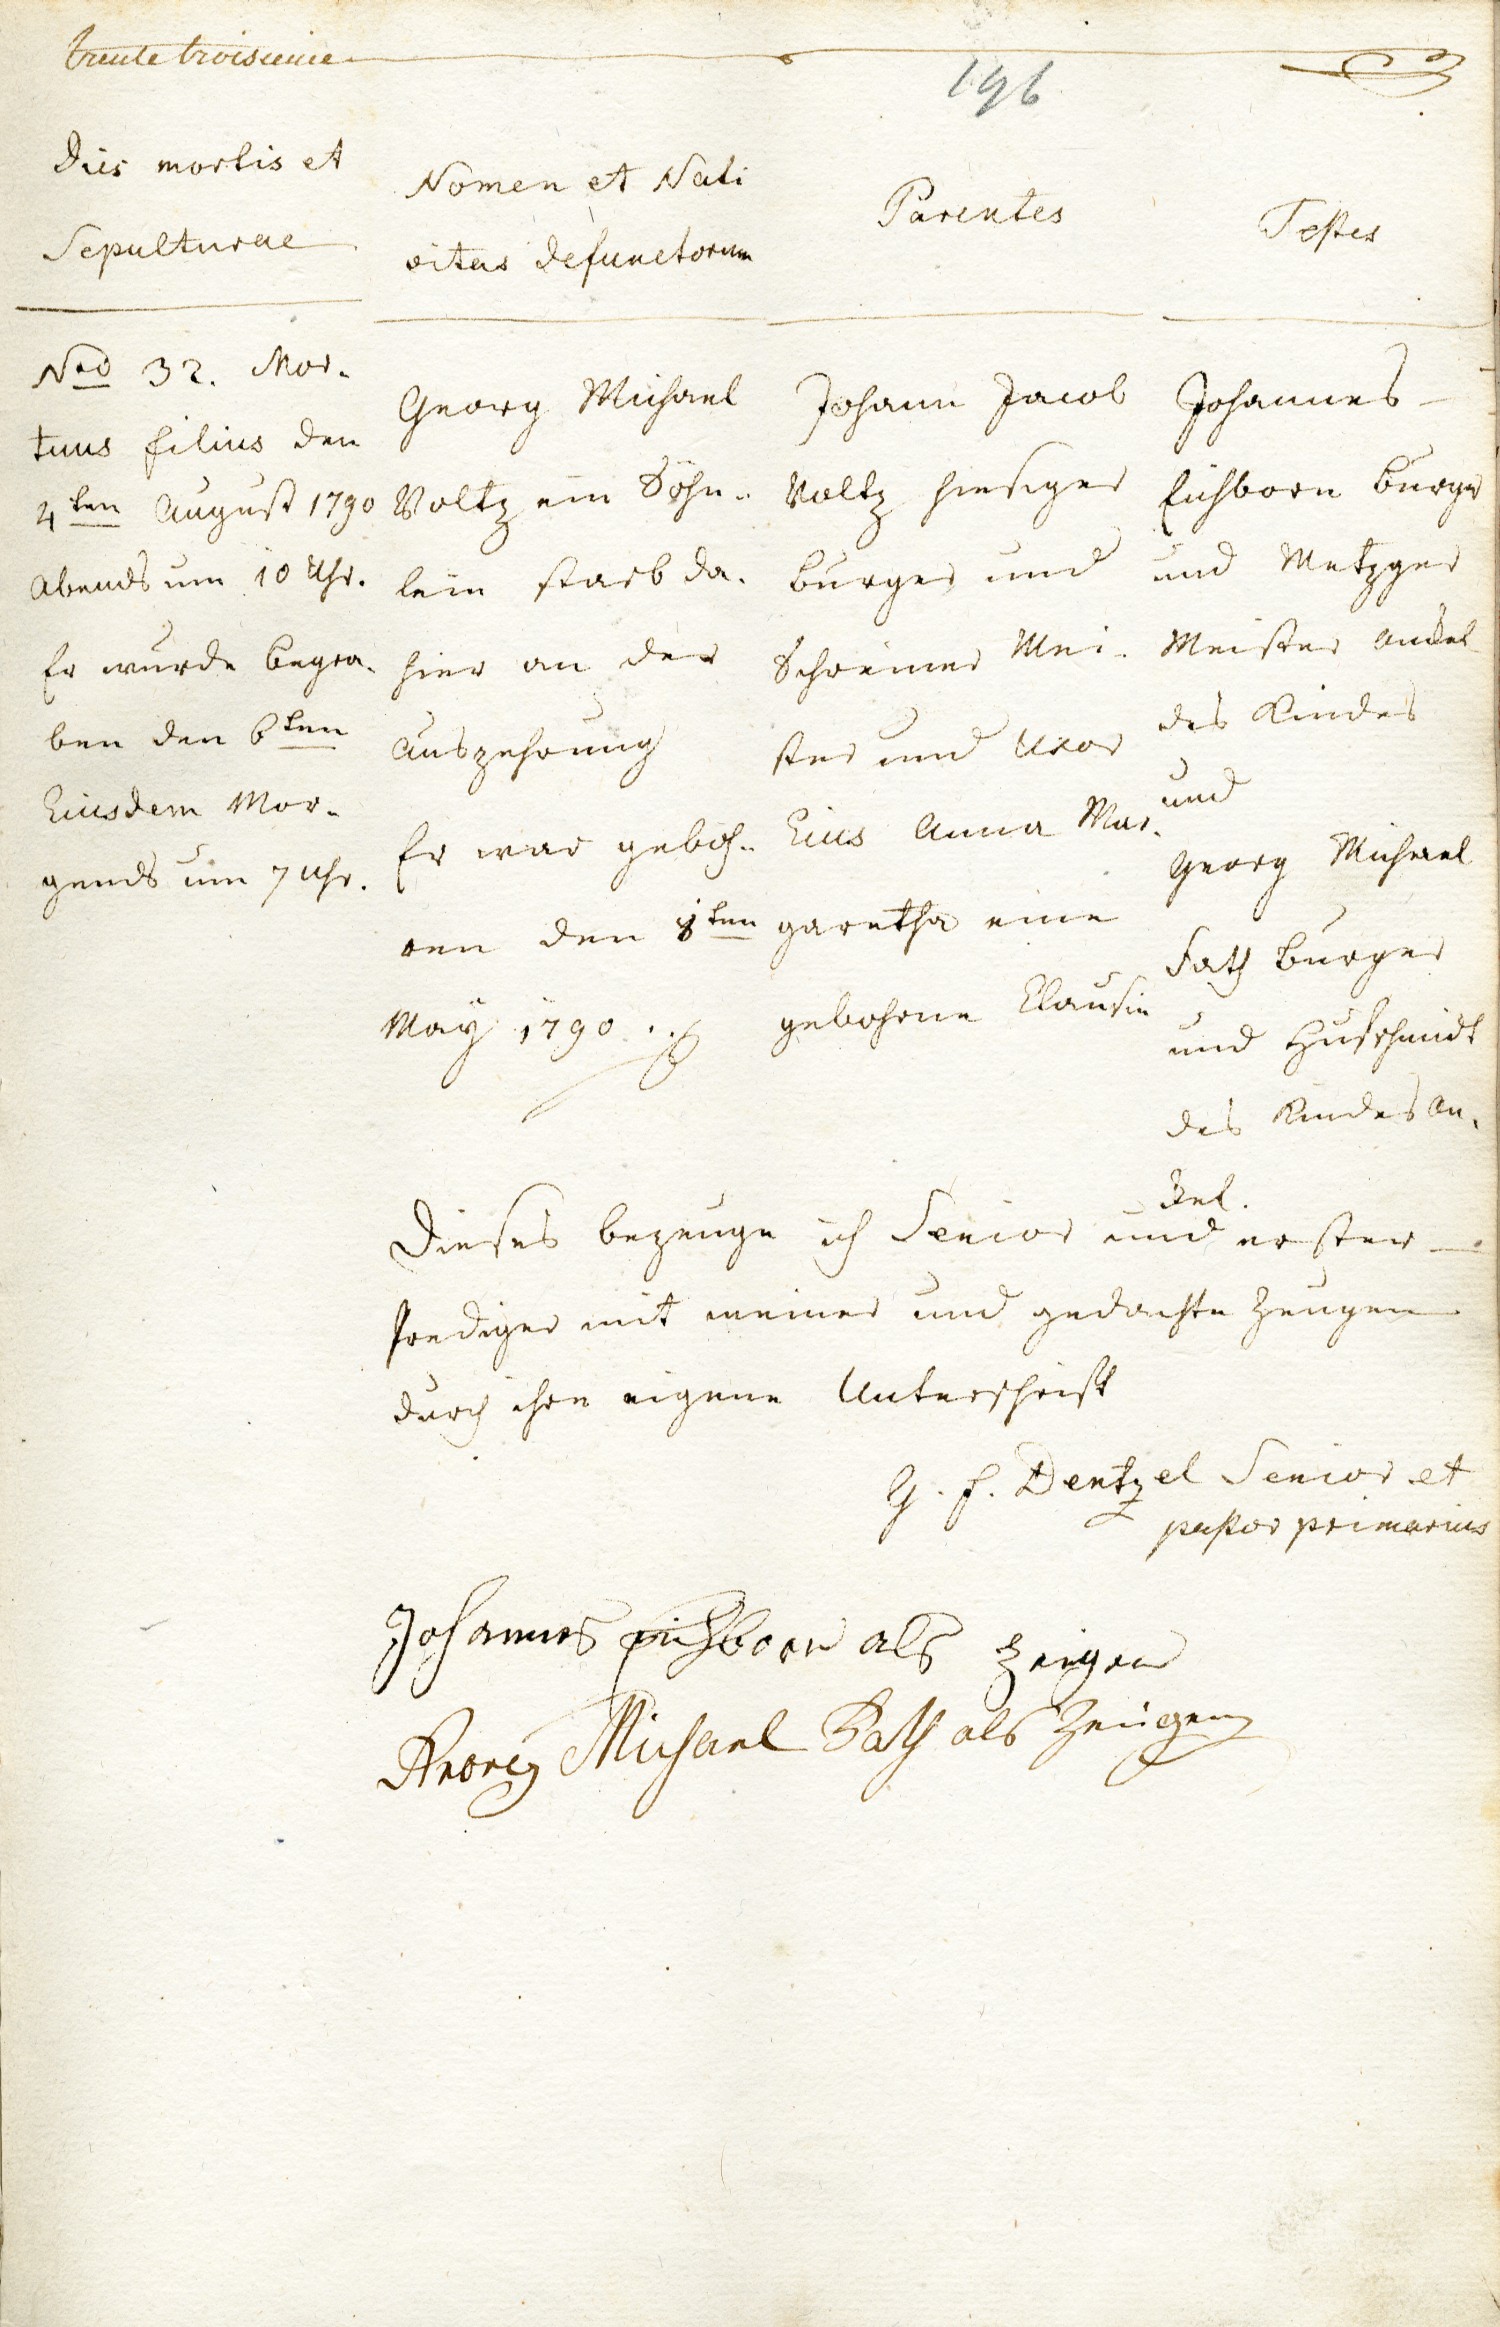 trente troisieme
196
Dies mortis et
Sepulturae
Nomen et Nati
vitas defunctorum
Parentes
Testes
Nro 32. Mor-
tuus filius den
4ten August 1790
Abends um 10 Uhr.
Er wurde begra-
ben den 6ten
Eiusdem Mor-
gends um 7 Uhr.
Georg Michael
Voltz ein Söhn-
lein starb da-
hier an der
Auszehrung
Er war geboh-
ren den 8ten
May 1790
Johann Jacob
Voltz hiesiger
burger und
Schreiner Mei-
ster und Uxor
Eius Anna Mar-
garetha eine
gebohrne Clausin
Johannes
Eichborn burger
und Metzger
Meister Onckel
des Kindes
und
Georg Michael
Fath burger
und Hufschmidt
des Kindes On-
ckel.
Dieses bezeuge ich Senior und erster
Prediger mit meiner und gedachte Zeugen
durch ihre eigene Unterschrift
G. F. Dentzel Senior et
pastor primarius
Johannes Eichborn als Zeigen
Georg Michael Fath als Zeugen